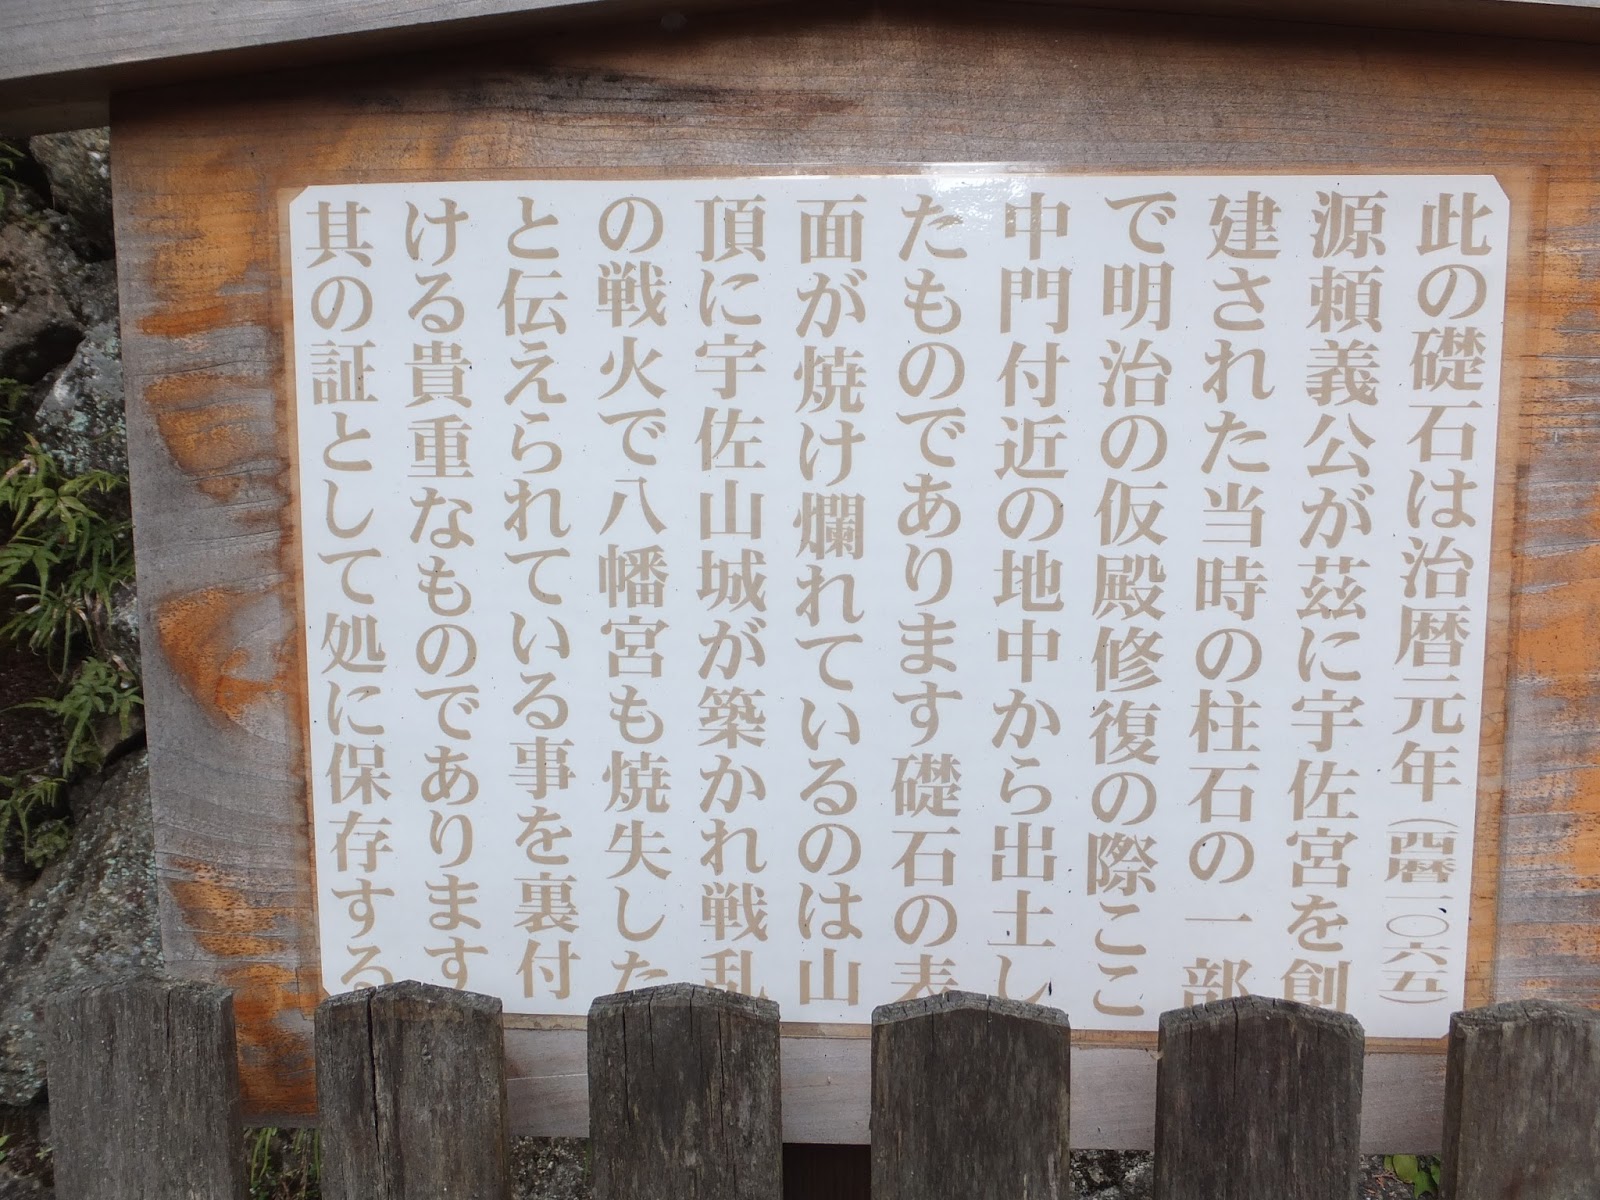 此の礎石は治暦元年(西暦一〇六五)
源頼義公が茲に宇佐宮を創
建された当時の柱石の一部
で明治の仮殿修復の際ここ
中門付近の地中から出土し
たものであります礎石の表
面が焼け爛れているのは山
頂に宇佐山城が築かれ戦乱
の戦火で八幡宮も焼失した
と伝えられている事を裏付
ける貴重なものであります
其の証として処に保存する